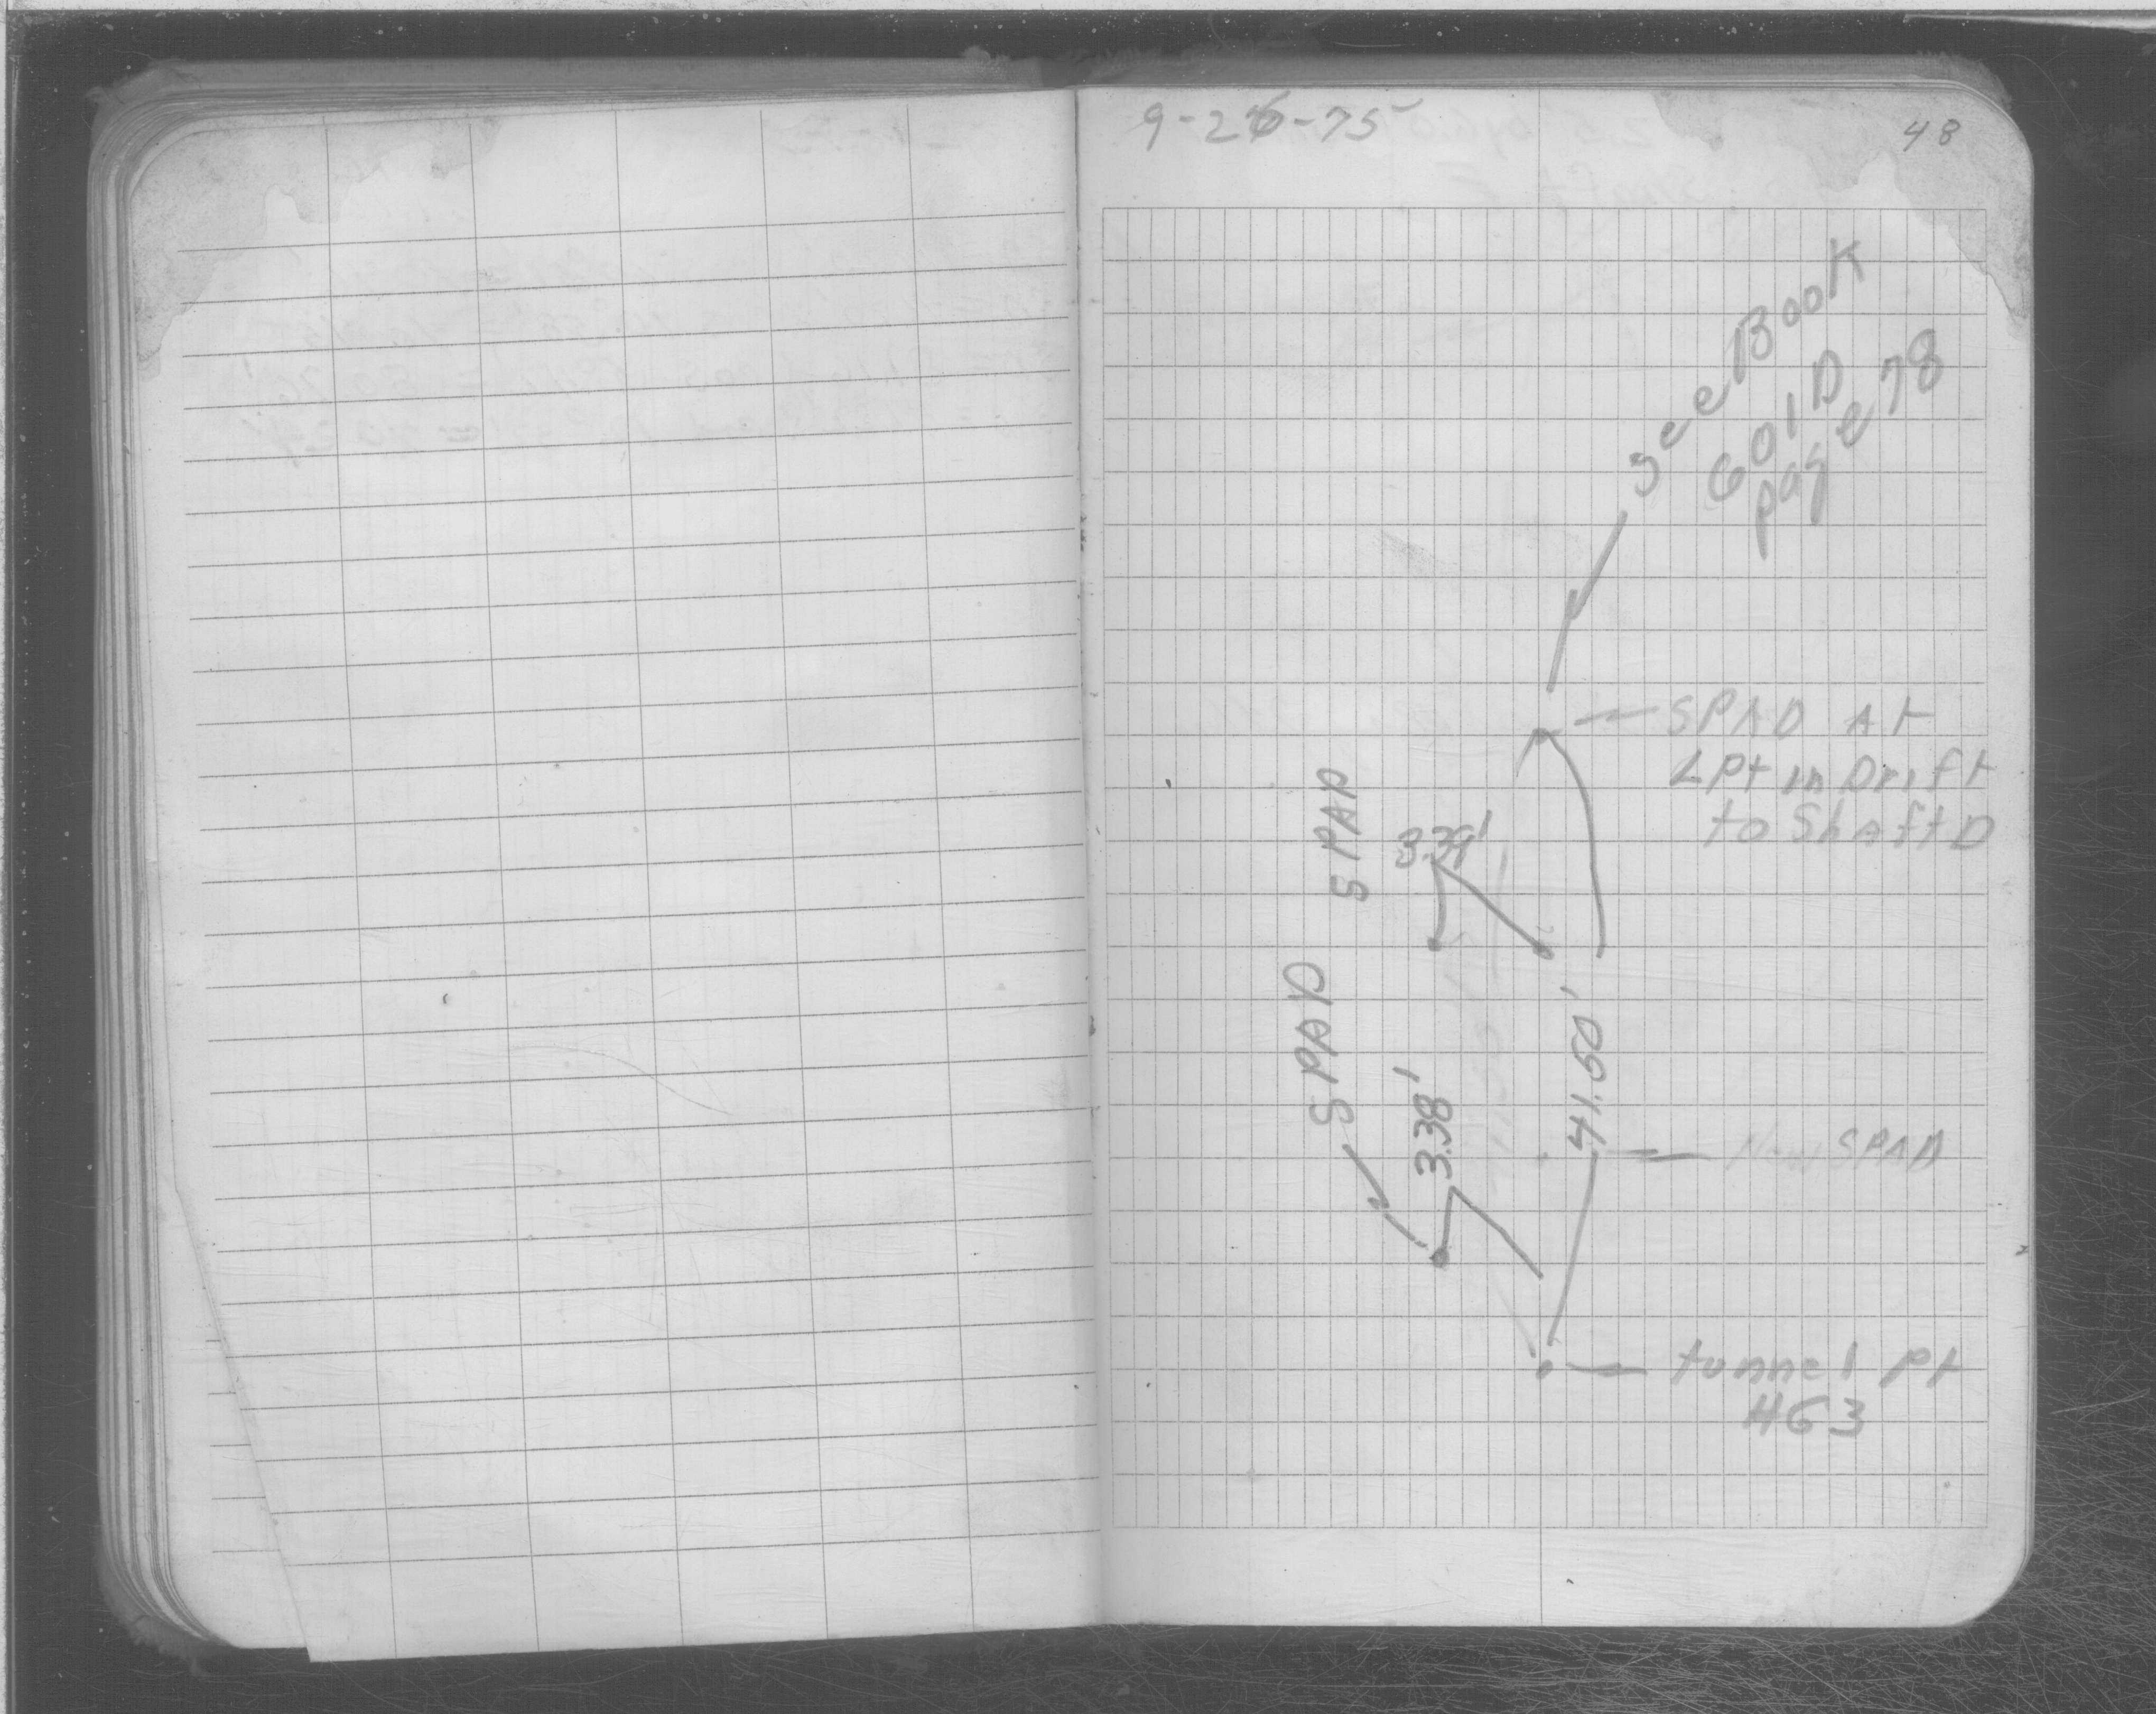 9-26-75
48
See Book
601D
page 78
SPAD At
LPt in Drift
to Shaft D
SPAD
3.39'
SPAD
3.38'
41.60'
New SPAD
tunnel pt
463